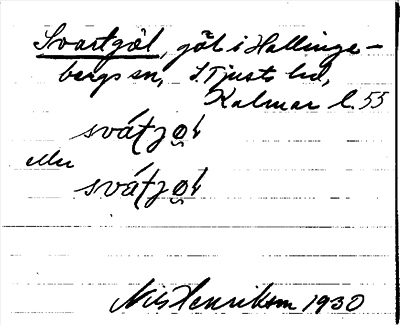 Svartgöl, göl i Hallinge-
bergs sn, S. Tjusts hd,
Kalmar l. 55
svátjo̤l
eller
svátjo̤l
Nils Henrikson 1930